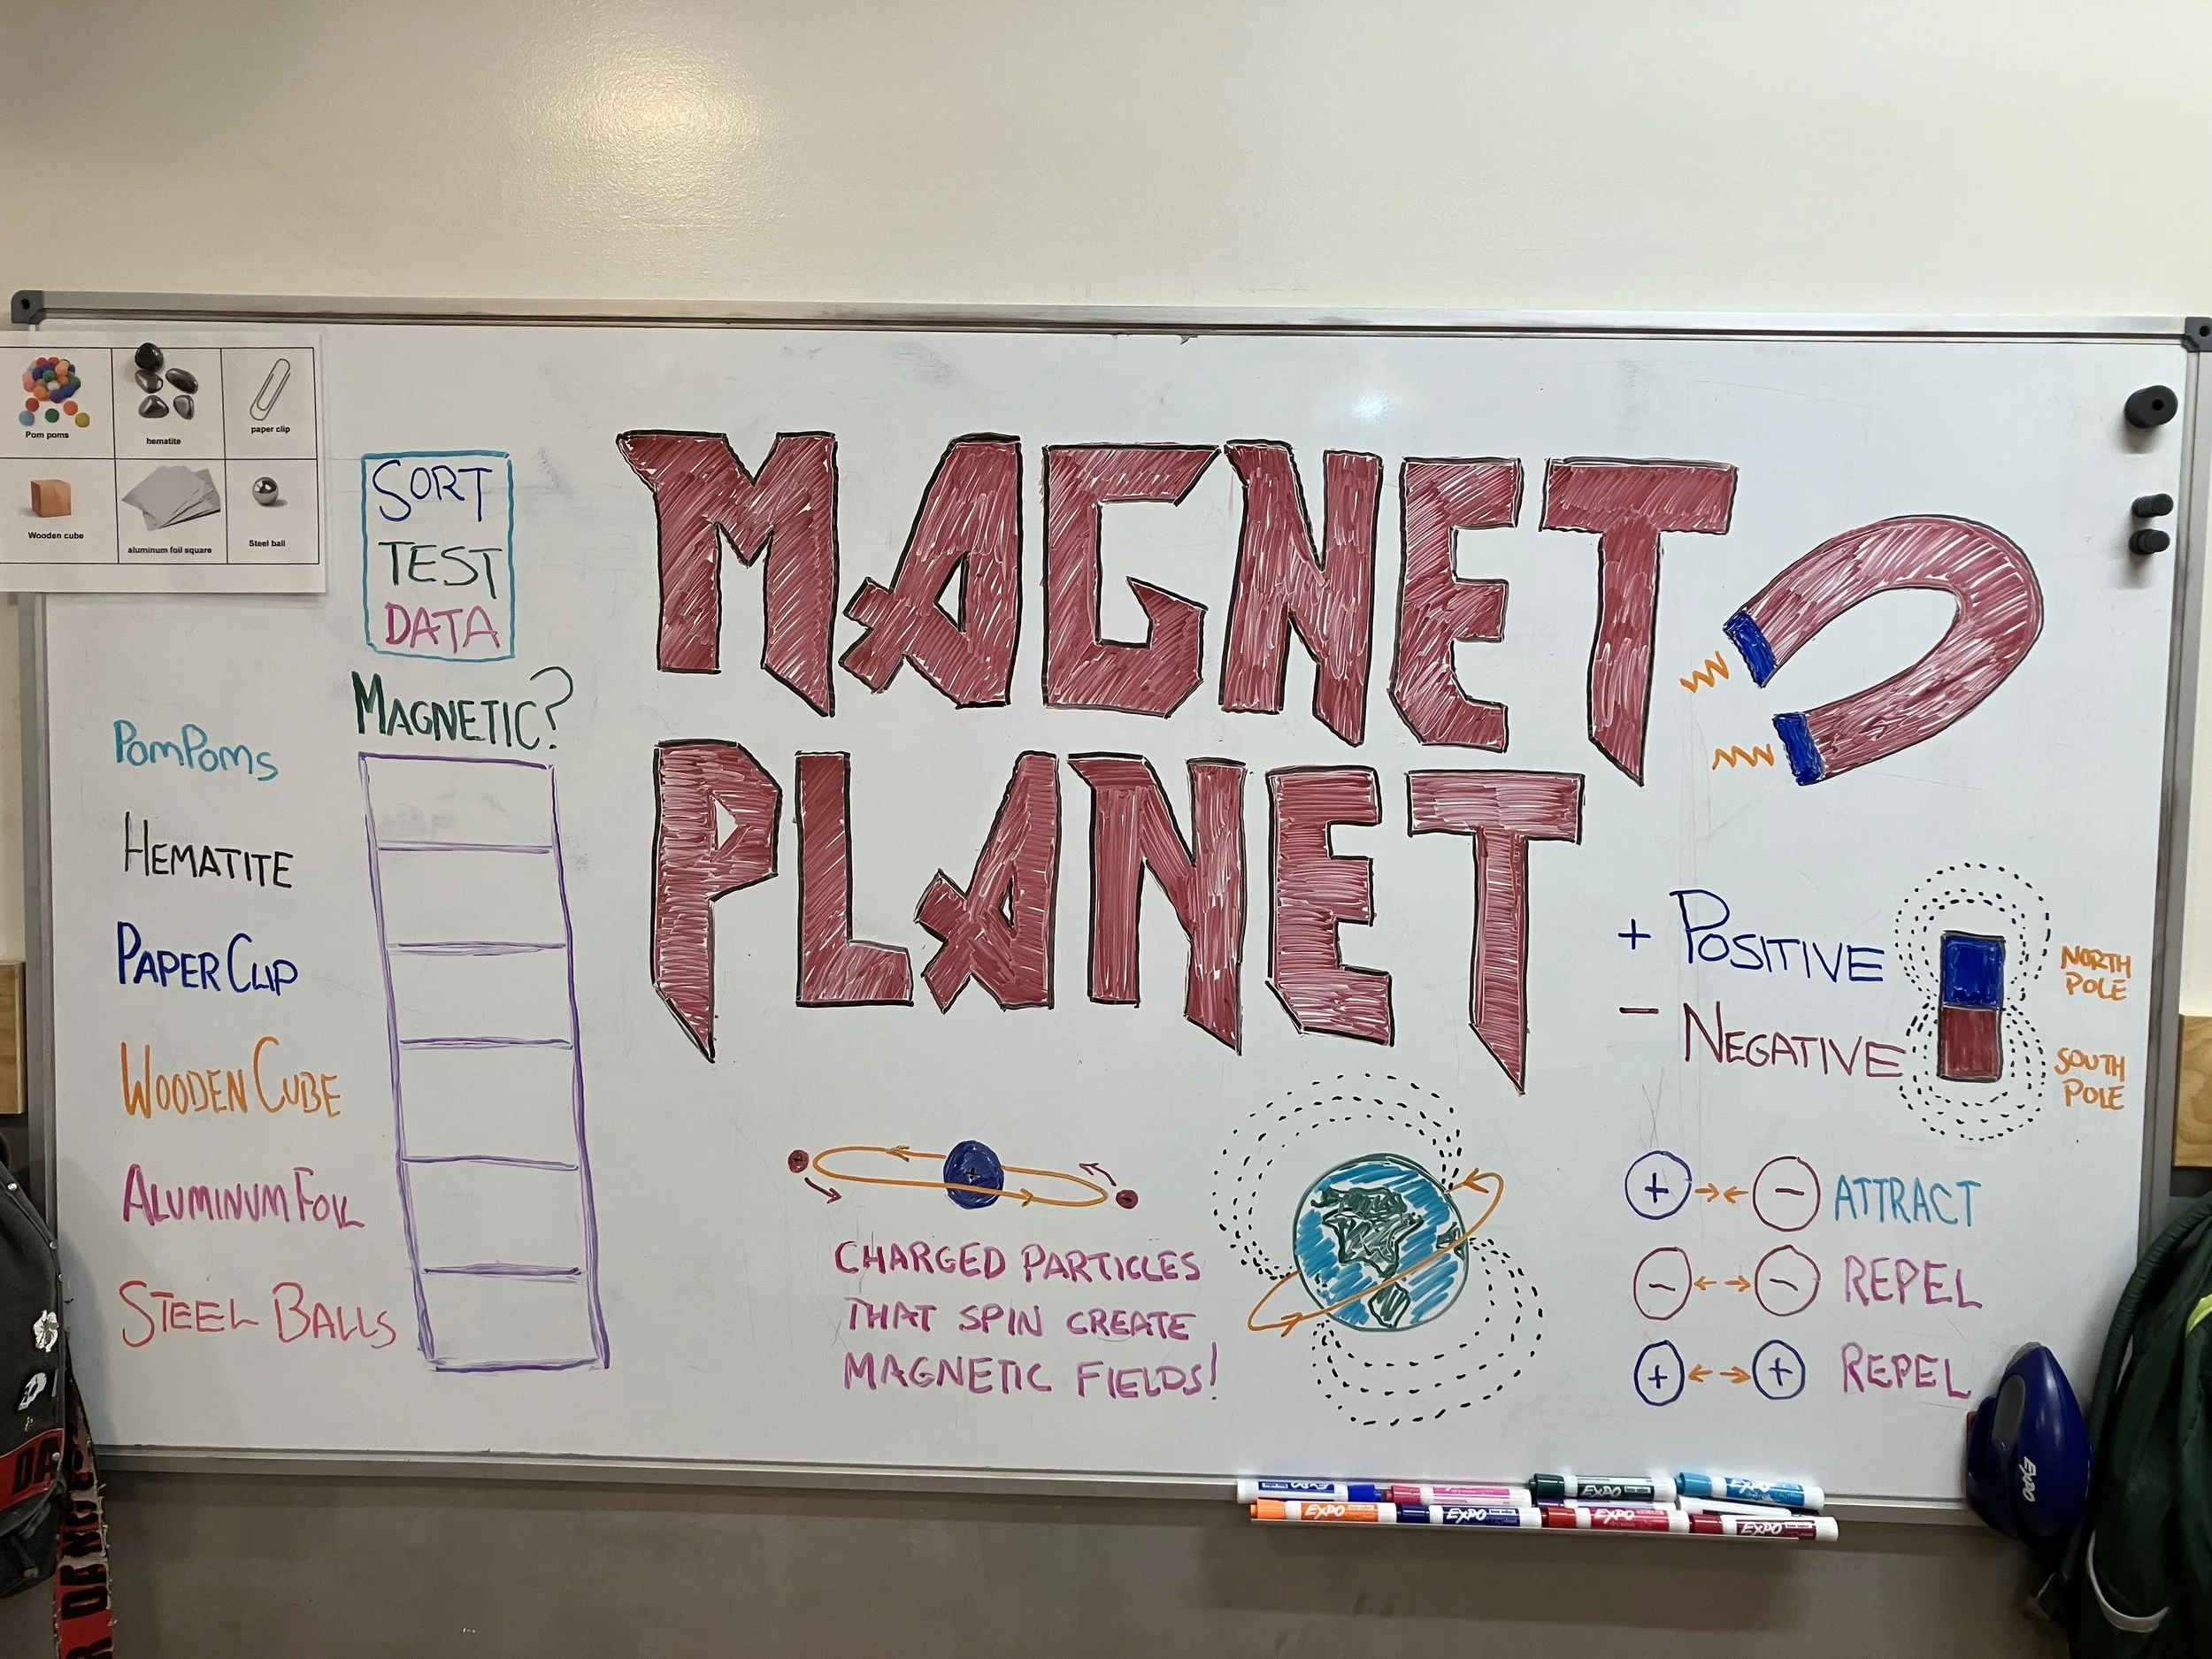 Pom poms
hematite
paper clip
Wooden cube
aluminum foil square
Steel ball
SORT
TEST
DATA
MAGNETIC?
POMPOMS
HEMATITE
PAPER CLIP
WOODEN CUBE
ALUMINUM FOIL
STEEL BALLS
MAGNET
PLANET
+
CHARGED PARTICLES
THAT SPIN CREATE
MAGNETIC FIELDS!
+ POSITIVE
- NEGATIVE
NORTH
POLE
SOUTH
POLE
+ → ← - ATTRACT
- ← → - REPEL
+ ← → + REPEL
EXPO
EXPO
EXPO
EXPO
EXPO
EXPO
EXPO
EXPO
EXPO